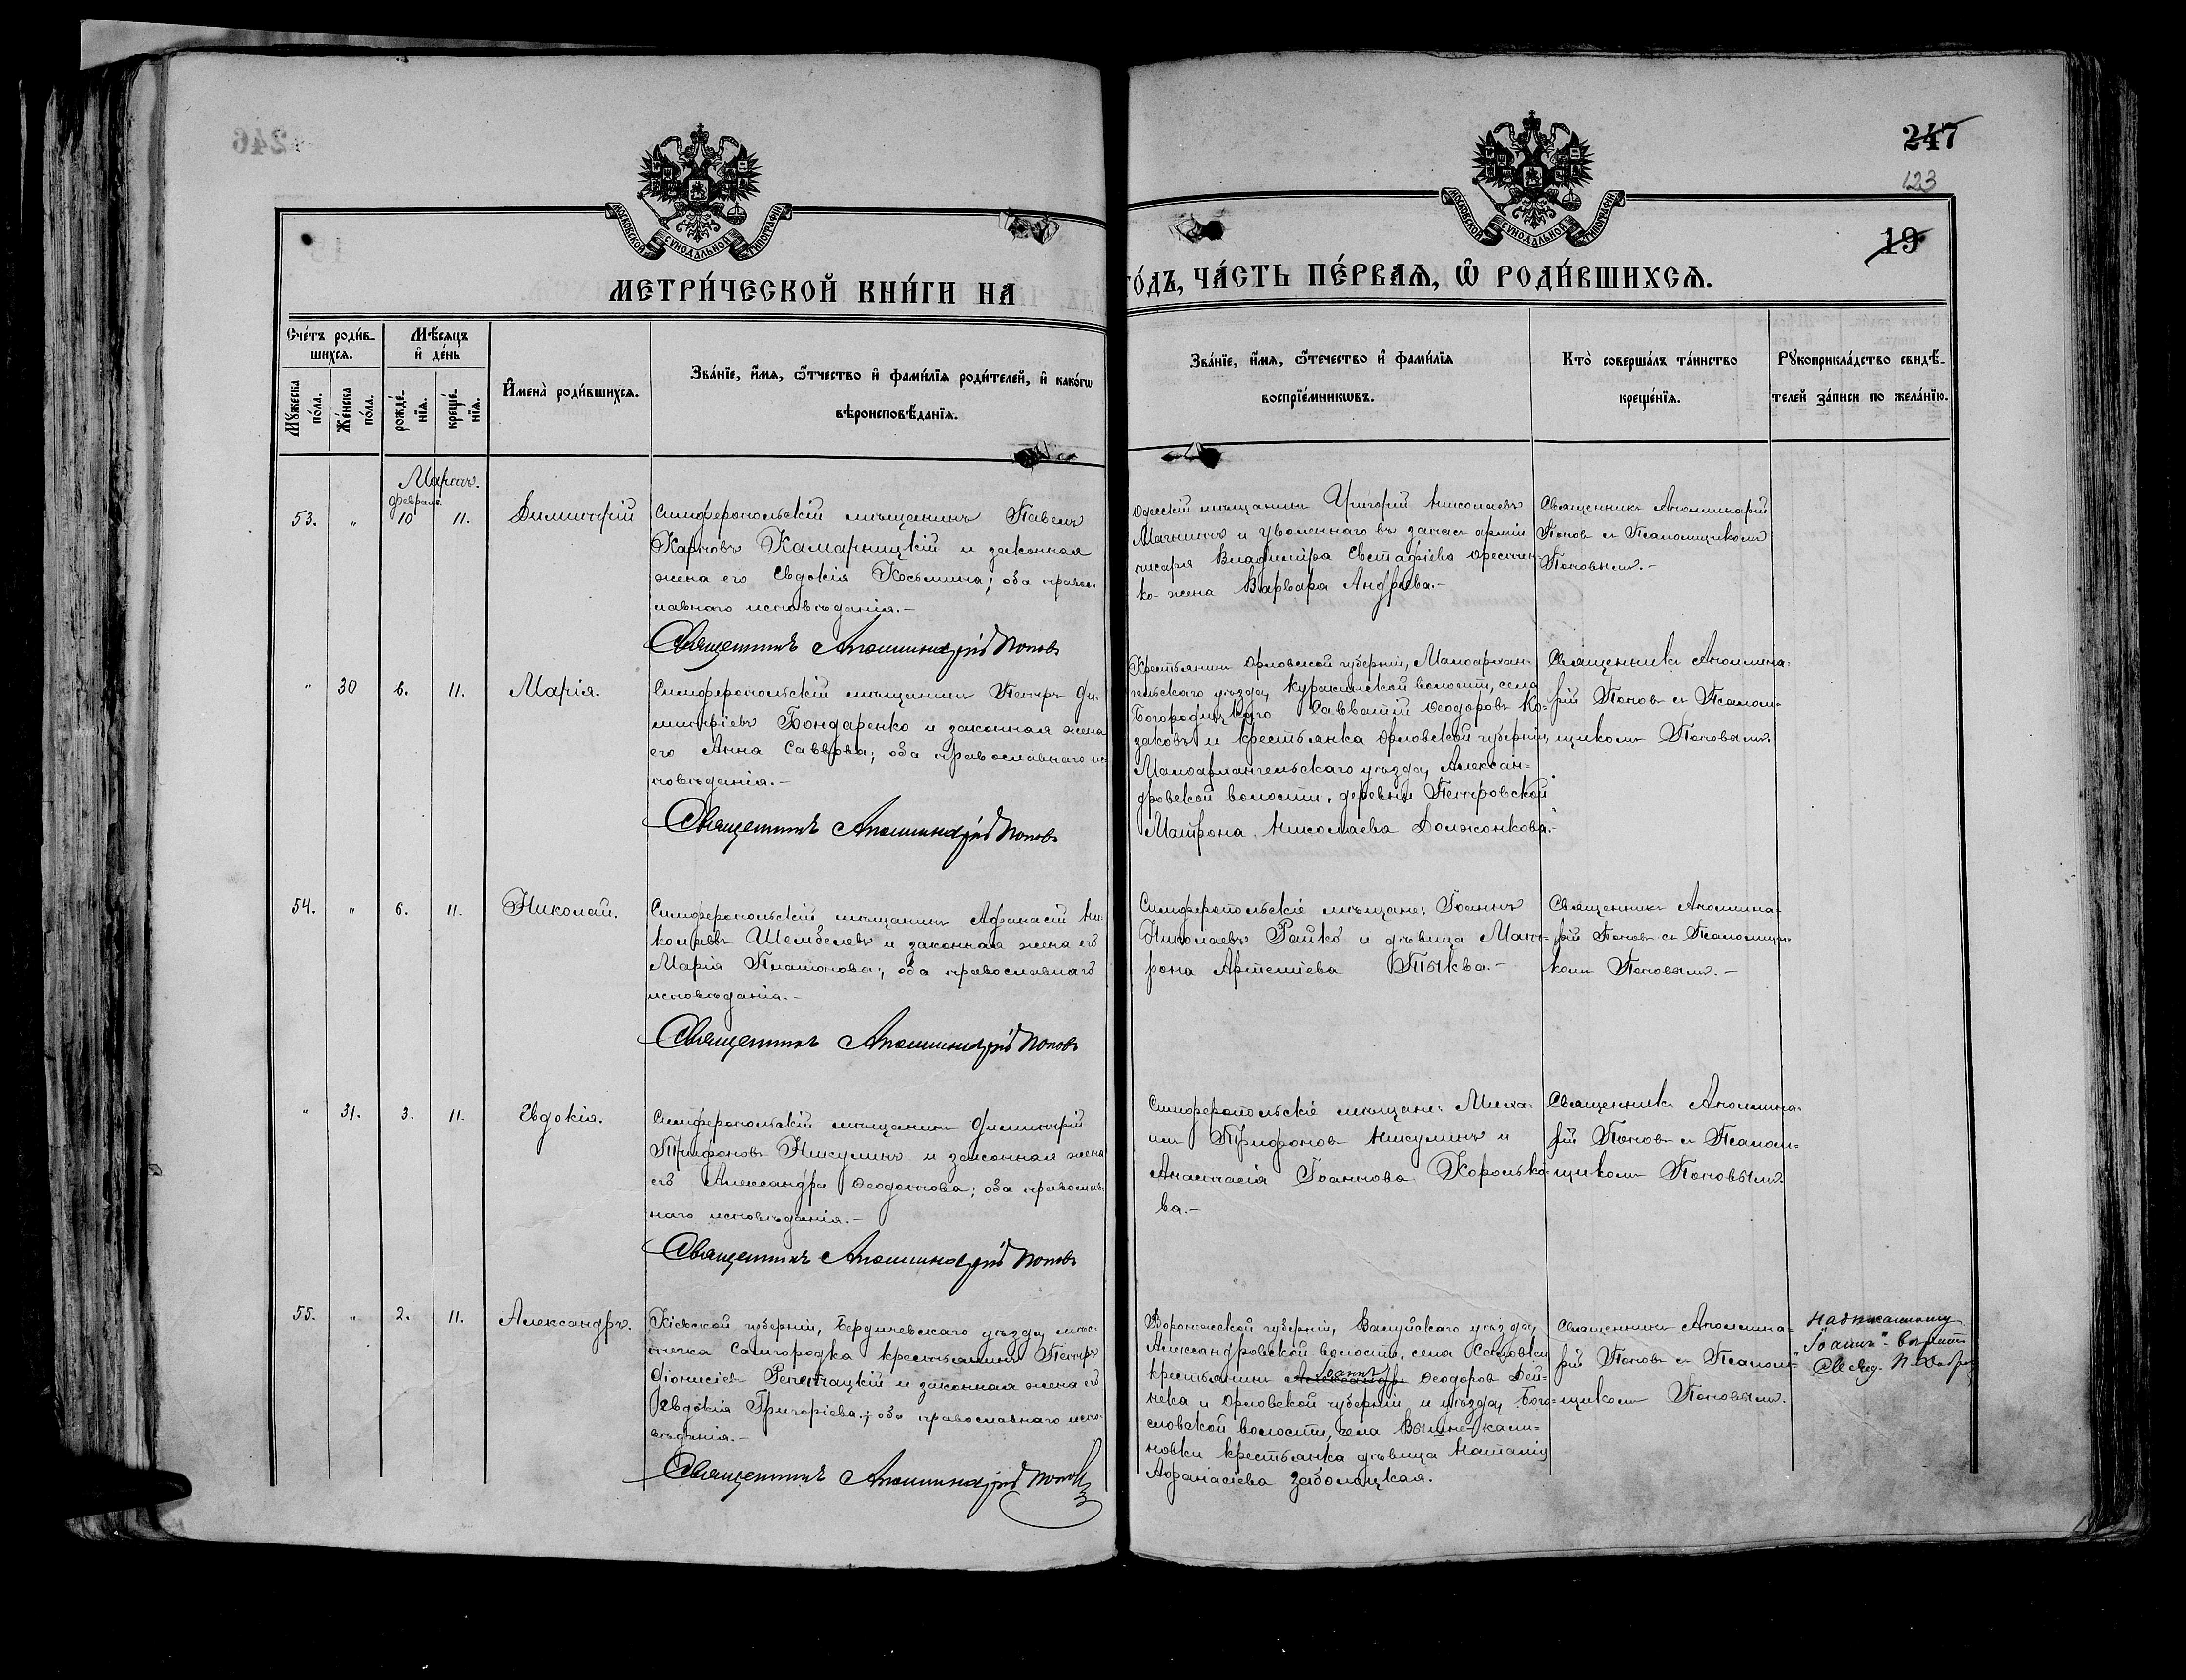 246
247
123
19
МОСКОВСКОЙ СУНОДАЛЬНОЙ ТИПОГРАФІИ
МОСКОВСКОЙ СУНОДАЛЬНОЙ ТИПОГРАФІИ
МЕТРИ́ЧЕСКОЙ КНИ́ГИ НА
ГО́ДЪ, ЧА́СТЬ ПЕ́РВАѦ, Ѿ РОДИ́ВШИХСѦ.
Сче́тъ роди́в-
шихся.
Мѣ́сяцъ
и҆ де́нь
Мꙋ́жеска по́ла.
Же́нска по́ла.
рожде́-
нїя.
креще́-
нїя.
И҆мена̀ роди́вшихся.
Зва́нїе, и҆́мя, ѻ҆́тчество и҆ фами́лїя роди́телей, и҆ како́гѡ
вѣроисповѣ́данїя.
Зва́нїе, и҆́мя, ѻ҆́течество и҆ фами́лїя
воспрїе́мникѡвъ.
Кто̀ соверша́лъ та́инство
креще́нїя.
Рꙋкоприкла́дство свидѣ́-
телей за́писи по жела́нїю.
Мартъ.
февраля
53. " 10 11. Димитрій
Симферопольскій мѣщанинъ Павелъ
Карповъ Камарницкій и законная
жена его Евдокія Косьмина; оба правос-
лавнаго исповѣданія.–
Священникъ Аполлинарій Поповъ
Одесскій мѣщанинъ Григорій Николаевъ
и уволеннаго въ запасъ арміи
писаря Владиміра Евстафіева
ко- жена Варвара Андреева.–
Священникъ Аполлинарій
Поповъ съ Псаломщикомъ
Поповымъ.–
" 30 6. 11. Марія.
Симферопольскій мѣщанинъ Петръ Ди-
митріевъ Бондаренко и законная жена
его Анна Саввова; оба православнаго ис-
повѣданія.–
Священникъ Аполлинарій Поповъ
Крестьянинъ Орловской губерніи, Малоархан-
гельскаго уѣзда, Куракинской волости, села
Богородицкаго Савватій Ѳеодоровъ Ко-
заковъ и крестьянка Орловской губерніи,
Малоархангельскаго уѣзда, Алексан-
дровской волости, деревни Петровской
Матрона Николаева Должонкова.–
Священникъ Аполлина-
рій Поповъ съ Псалом-
щикомъ Поповымъ.
54. " 6. 11. Николай.
Симферопольскій мѣщанинъ Афанасій Ни-
колаевъ Шембелевъ и законная жена его
Марія Платонова; оба православнаго
исповѣданія.–
Священникъ Аполлинарій Поповъ
Симферопольскіе мѣщане: Іоаннъ
Николаевъ Райко и дѣвица Мат-
рона Артеміева Тыква.–
Священникъ Аполлина-
рій Поповъ съ Псаломщи-
комъ Поповымъ.–
" 31. 3. 11. Евдокія.
Симферопольскій мѣщанинъ Димитрій
Трифоновъ Никулинъ и законная жена
его Александра Ѳеодотова; оба православ-
наго исповѣданія.–
Священникъ Аполлинарій Поповъ
Симферопольскіе мѣщане: Миха-
илъ Трифоновъ Никулинъ и
Анастасія Іоаннова Королько-
ва.–
Священникъ Аполлина-
рій Поповъ съ Псалом-
щикомъ Поповымъ.
55. " 2. 11. Александръ.
Кіевской губерніи, Бердичевскаго уѣзда, мѣс-
течка Самгородка крестьянинъ Петръ
Діонисіевъ и законная жена его
Евдокія Григоріева; оба православнаго испо-
вѣданія.–
Священникъ Аполлинарій Поповъ
Воронежской губерніи, Валуйскаго уѣзда,
Александровской волости, села
Іоаннъ
крестьянинъ Александръ Ѳеодоровъ Дей-
нека и Орловской губерніи и уѣзда, Бого-
словской волости, села Вышне-кали-
новки крестьянка дѣвица Наталія
Афанасіева Заболоцкая.
Священникъ Аполлина-
рій Поповъ съ Псалом-
щикомъ Поповымъ.
надписанному
"Іоаннъ" вѣрить